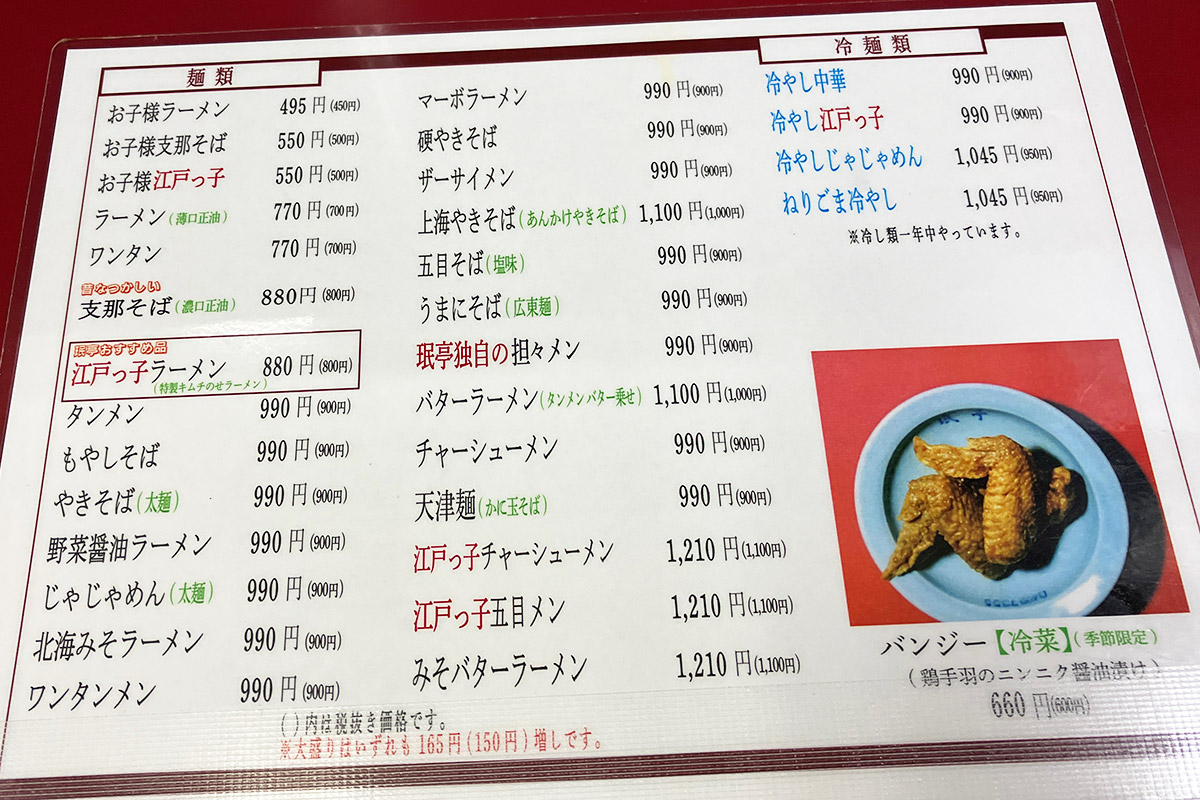 麺類
お子様ラーメン 495円(450円)
お子様支那そば 550円(500円)
お子様江戸っ子 550円(500円)
ラーメン(薄口正油) 770円(700円)
ワンタン 770円(700円)
昔なつかしい
支那そば(濃口正油) 880円(800円)
珉亭おすすめ品
江戸っ子ラーメン 880円(800円)
(特製キムチのせラーメン)
タンメン 990円(900円)
もやしそば 990円(900円)
やきそば(太麺) 990円(900円)
野菜醤油ラーメン 990円(900円)
じゃじゃめん(太麺) 990円(900円)
北海みそラーメン 990円(900円)
ワンタンメン 990円(900円)
マーボラーメン 990円(900円)
硬やきそば 990円(900円)
ザーサイメン 990円(900円)
上海やきそば(あんかけやきそば) 1,100円(1,000円)
五目そば(塩味) 990円(900円)
うまにそば(広東麺) 990円(900円)
珉亭独自の担々メン 990円(900円)
バターラーメン(タンメンバター乗せ) 1,100円(1,000円)
チャーシューメン 990円(900円)
天津麺(かに玉そば) 990円(900円)
江戸っ子チャーシューメン 1,210円(1,100円)
江戸っ子五目メン 1,210円(1,100円)
みそバターラーメン 1,210円(1,100円)
()内は税抜き価格です。
※大盛りはいずれも165円(150円)増しです。
冷麺類
冷やし中華 990円(900円)
冷やし江戸っ子 990円(900円)
冷やしじゃじゃめん 1,045円(950円)
ねりごま冷やし 1,045円(950円)
※冷し類一年中やっています。
バンジー【冷菜】(季節限定)
(鶏手羽のニンニク醤油漬け)
660円(600円)